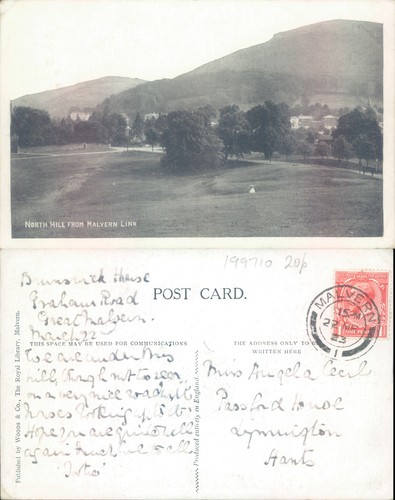 NORTH HILL FROM MALVERN LINK
199710 20p
Brunswick House
Graham Road
Great Malvern.
March 22
POST CARD.
THIS SPACE MAY BE USED FOR COMMUNICATIONS
THE ADDRESS ONLY TO BE
WRITTEN HERE
We are under this
hill, though not so near
on a very nice road with
houses looking up to it.
Hope you are quite well
again
Miss Angela Cecil
Passford House
Lymington
Hants
MALVERN
23
1
Published by Woods & Co., The Royal Library, Malvern.
Produced entirely in England.